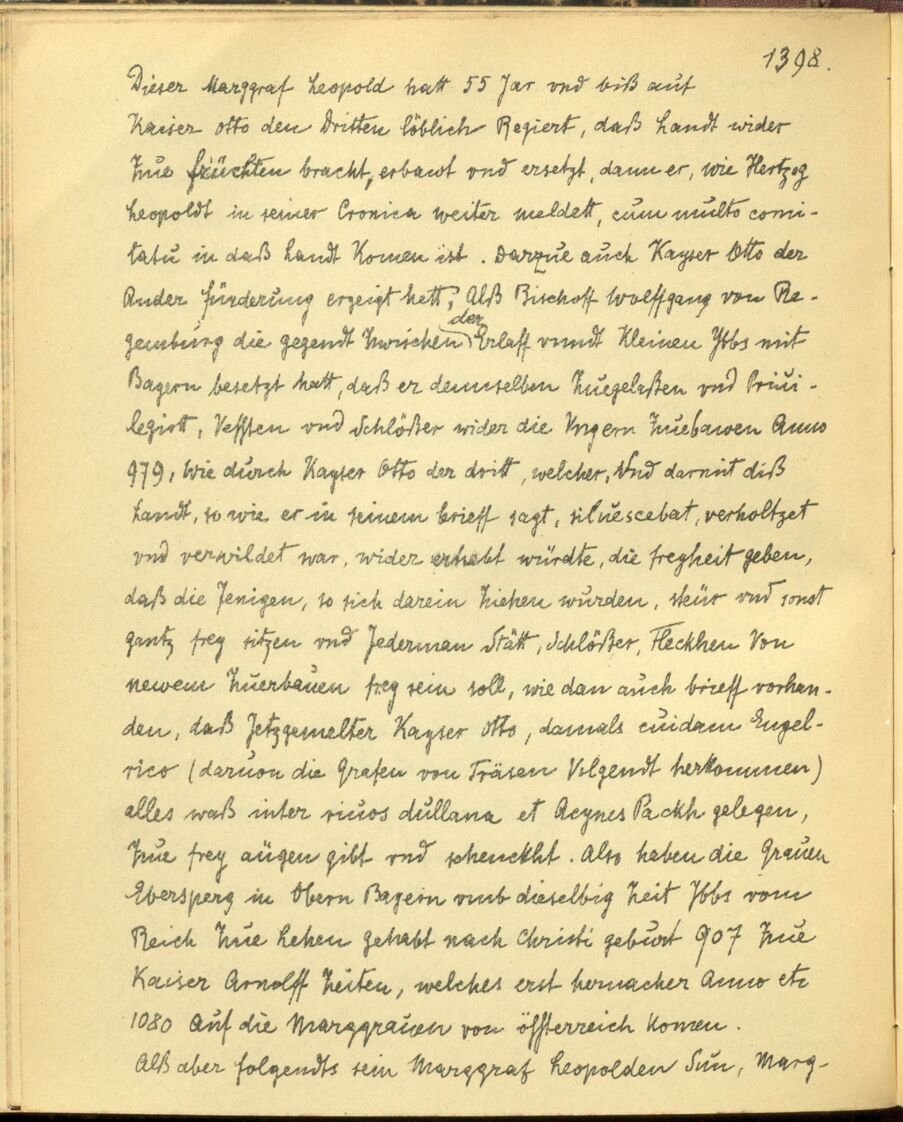 1398.
Dieser Marggraf Leopold hatt 55 Jar vnd biß auf
Kaiser Otto den Dritten löblich Regiert, daß Landt wider
Zue früchten bracht, erbawt vnd ersetzt, dann er, wie Hertzog
Leopoldt in seiner Cronica weiter meldett, cum multo comi-
tatu in daß Landt Komen ist. Darzue auch Kayser Otto der
Ander fürderung erzeigt hett, Alß Bischoff Wolffgang von Re-
gemburg die gegendt Zwischen der Erlaff vnndt Kleinen Ybbs mit
Bayern besetzt hatt, daß er demselben Zuegelaßen vnd Priui-
legirt, Vessten vnd Schlößer wider die Vngern Zuebawen Anno
979, Wie durch Kayser Otto der dritt, welcher, Vnd darmit diß
Landt, so wie er in seinem brieff sagt, siluescebat, verholtzet
vnd verwildet war, wider erhebt würdte, die freyheit geben,
daß die Jenigen, so sich darein Ziehen wurden, steür vnd sonst
gantz frey sitzen vnd Jederman Stätt, Schlößer, Fleckhen Von
newem Zuerbauen frey sein soll, wie dan auch brieff vorhan-
den, daß Jetzgemelter Kayser Otto, damals cuidam Engel-
rico (daruon die Grafen von Träsen Volgendt herkommen)
alles waß inter riuos dullana et Acynes Packh gelegen,
Zue frey aügen gibt vnd schenckht. Also haben die Grauen
Ebersperg in Obern Bayern vmb dieselbig Zeit Ybbs vom
Reich Zue Lehen gehabt nach Christi geburt 907 Zue
Kaiser Arnolff Zeiten, welches erst hernacher Anno etc
1080 Auf die Marggrauen von össterreich Komen.
Alß aber folgendts sein Marggraf Leopolden Sun, Marg-